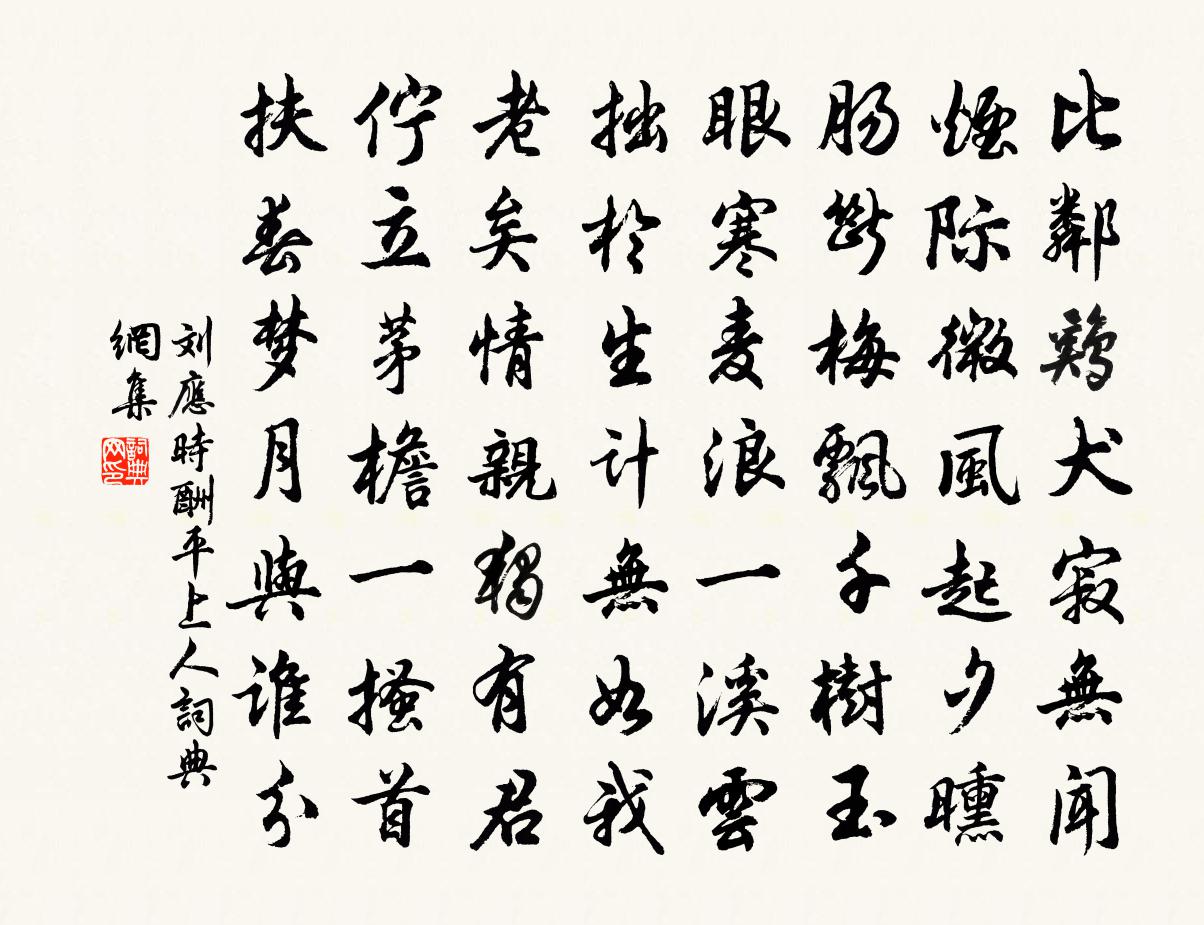 比鄰鷄犬寂無聞
煙际微風起夕曛
肠斷梅飄千樹玉
眼寒麦浪一溪雲
拙於生计無如我
老矣情親獨有君
佇立茅檐一搔首
扶春梦月與谁分
刘應時酬平上人詞典
網集
詞典
网印